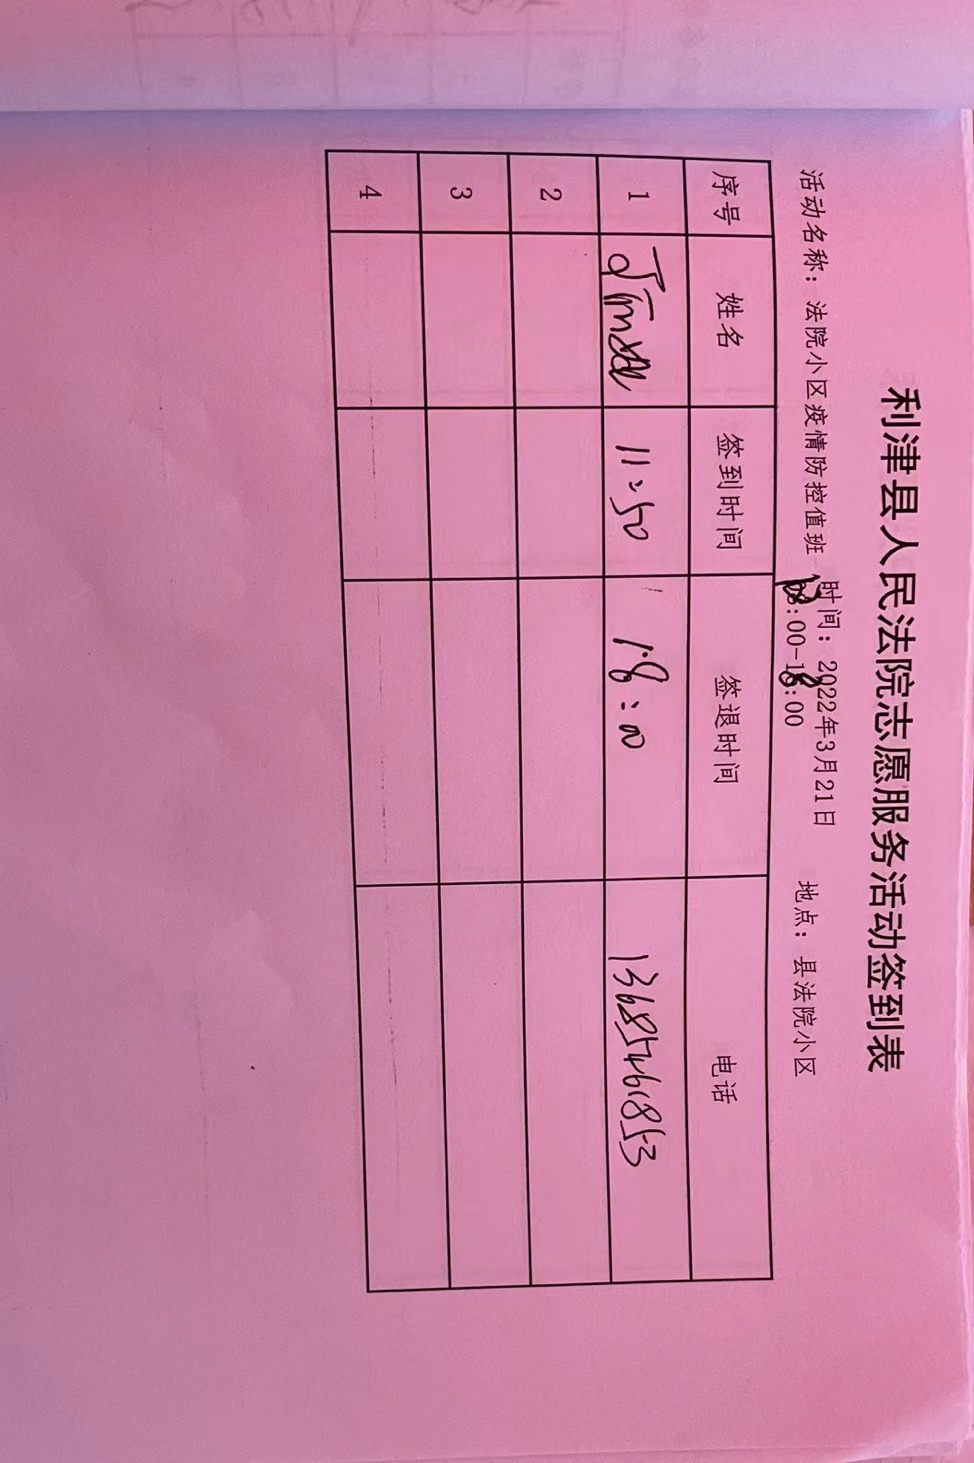 利津县人民法院志愿服务活动签到表
活动名称：法院小区疫情防控值班 时间：2022年3月21日 地点：县法院小区
12:00-18:00
序号 姓名 签到时间 签退时间 电话
1 11:50 18:00 13685461853
2
3
4